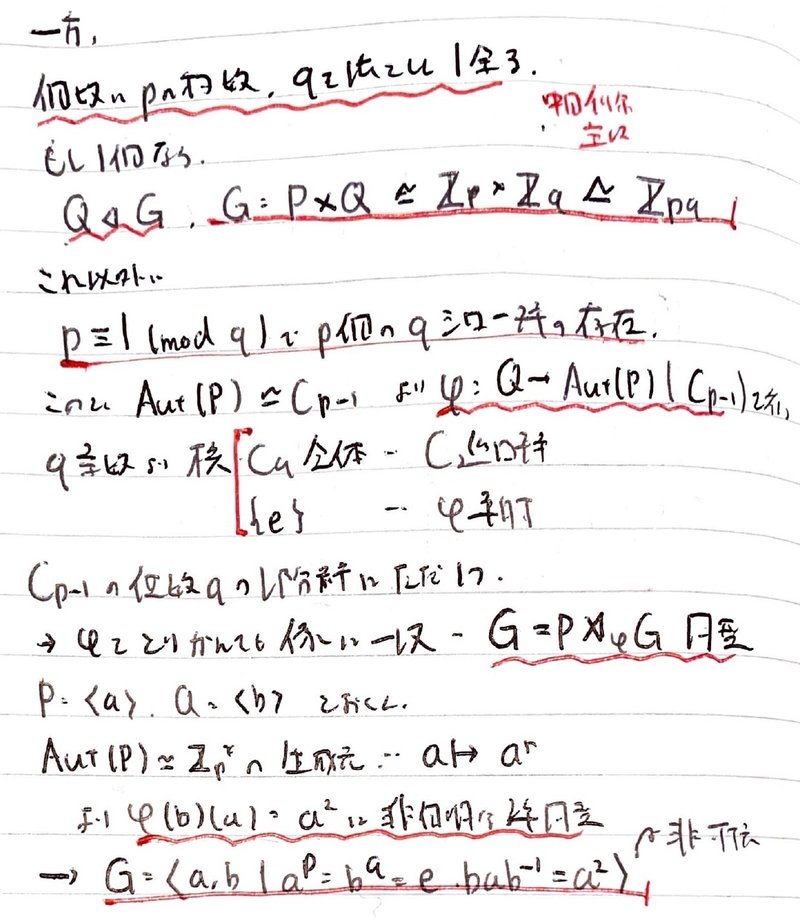 一方,
個数は pの約数, qを法として 1余る.
中国剰余
定理
もし1個なら.
Q ◁ G , G = P × Q ≃ Zp × Zq ≃ Zpq
これ以外に
p ≡ 1 (mod q) で p個の qシロー群の存在.
このとき Aut(P) ≃ Cp-1 より φ: Q → Aut(P) ( Cp-1 )
q素数より 核 Cq 全体 …
{e} … φ単射
Cp-1 の位数 q の部分群は ただ1つ.
→ φをとりかえても 像は一致 - G = P ⋊φ G 同型
P = <a> . Q = <b> とおくと.
Aut(P) ≃ Zp* の 生成元 … a ↦ a^r
より φ(b)(a) = a² は 非自明な 準同型
→ G = <a, b | a^p = b^q = e . bab⁻¹ = a²> 非可換